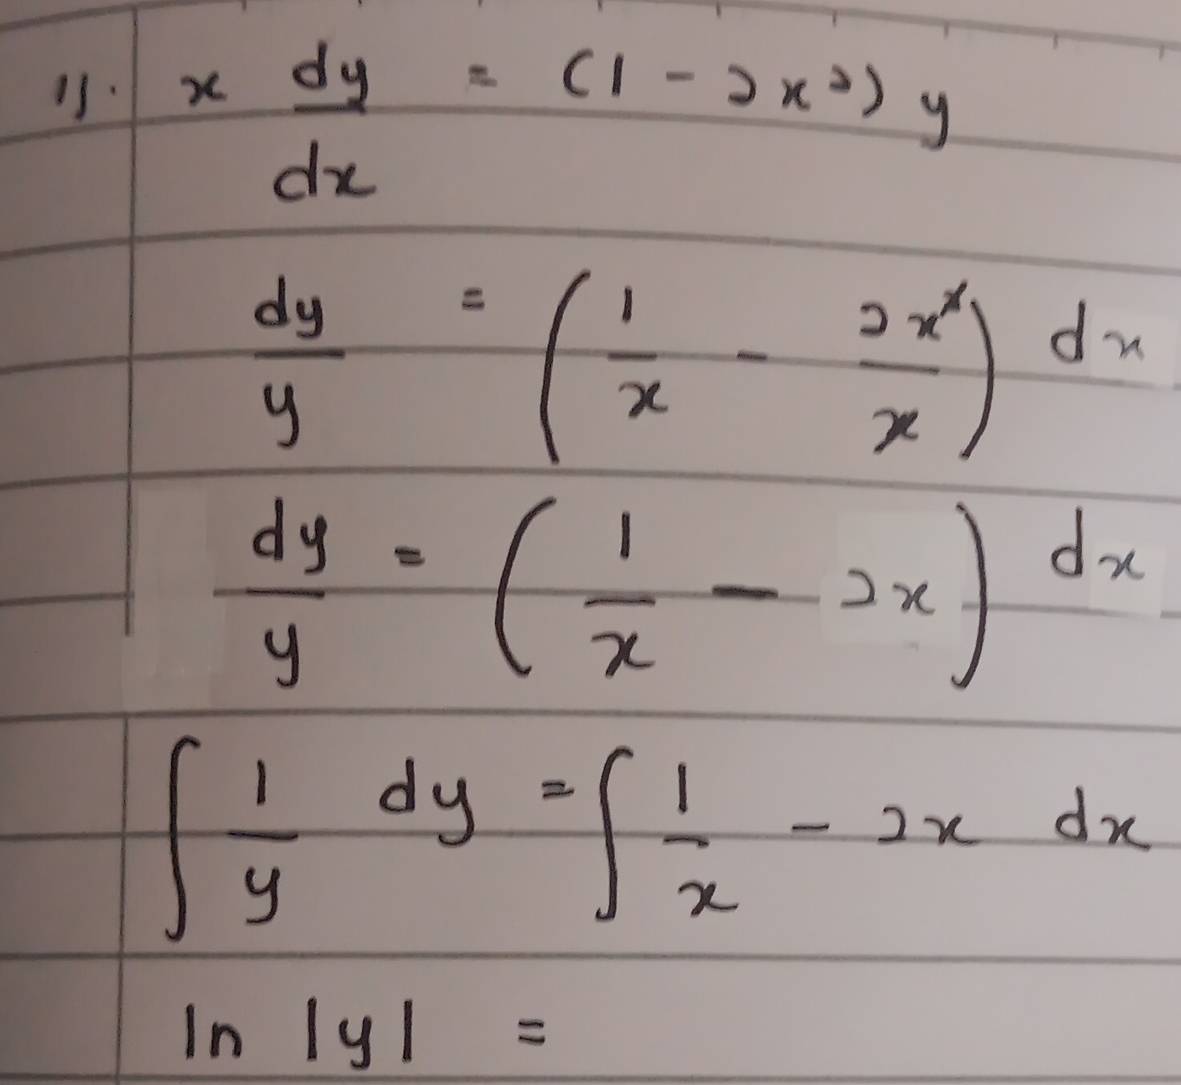 11. x dy/dx = (1 - 2x²) y
dy/y = (1/x - 2x²/x) dx
dy/y = (1/x - 2x) dx
∫ 1/y dy = ∫ 1/x - 2x dx
ln |y| =